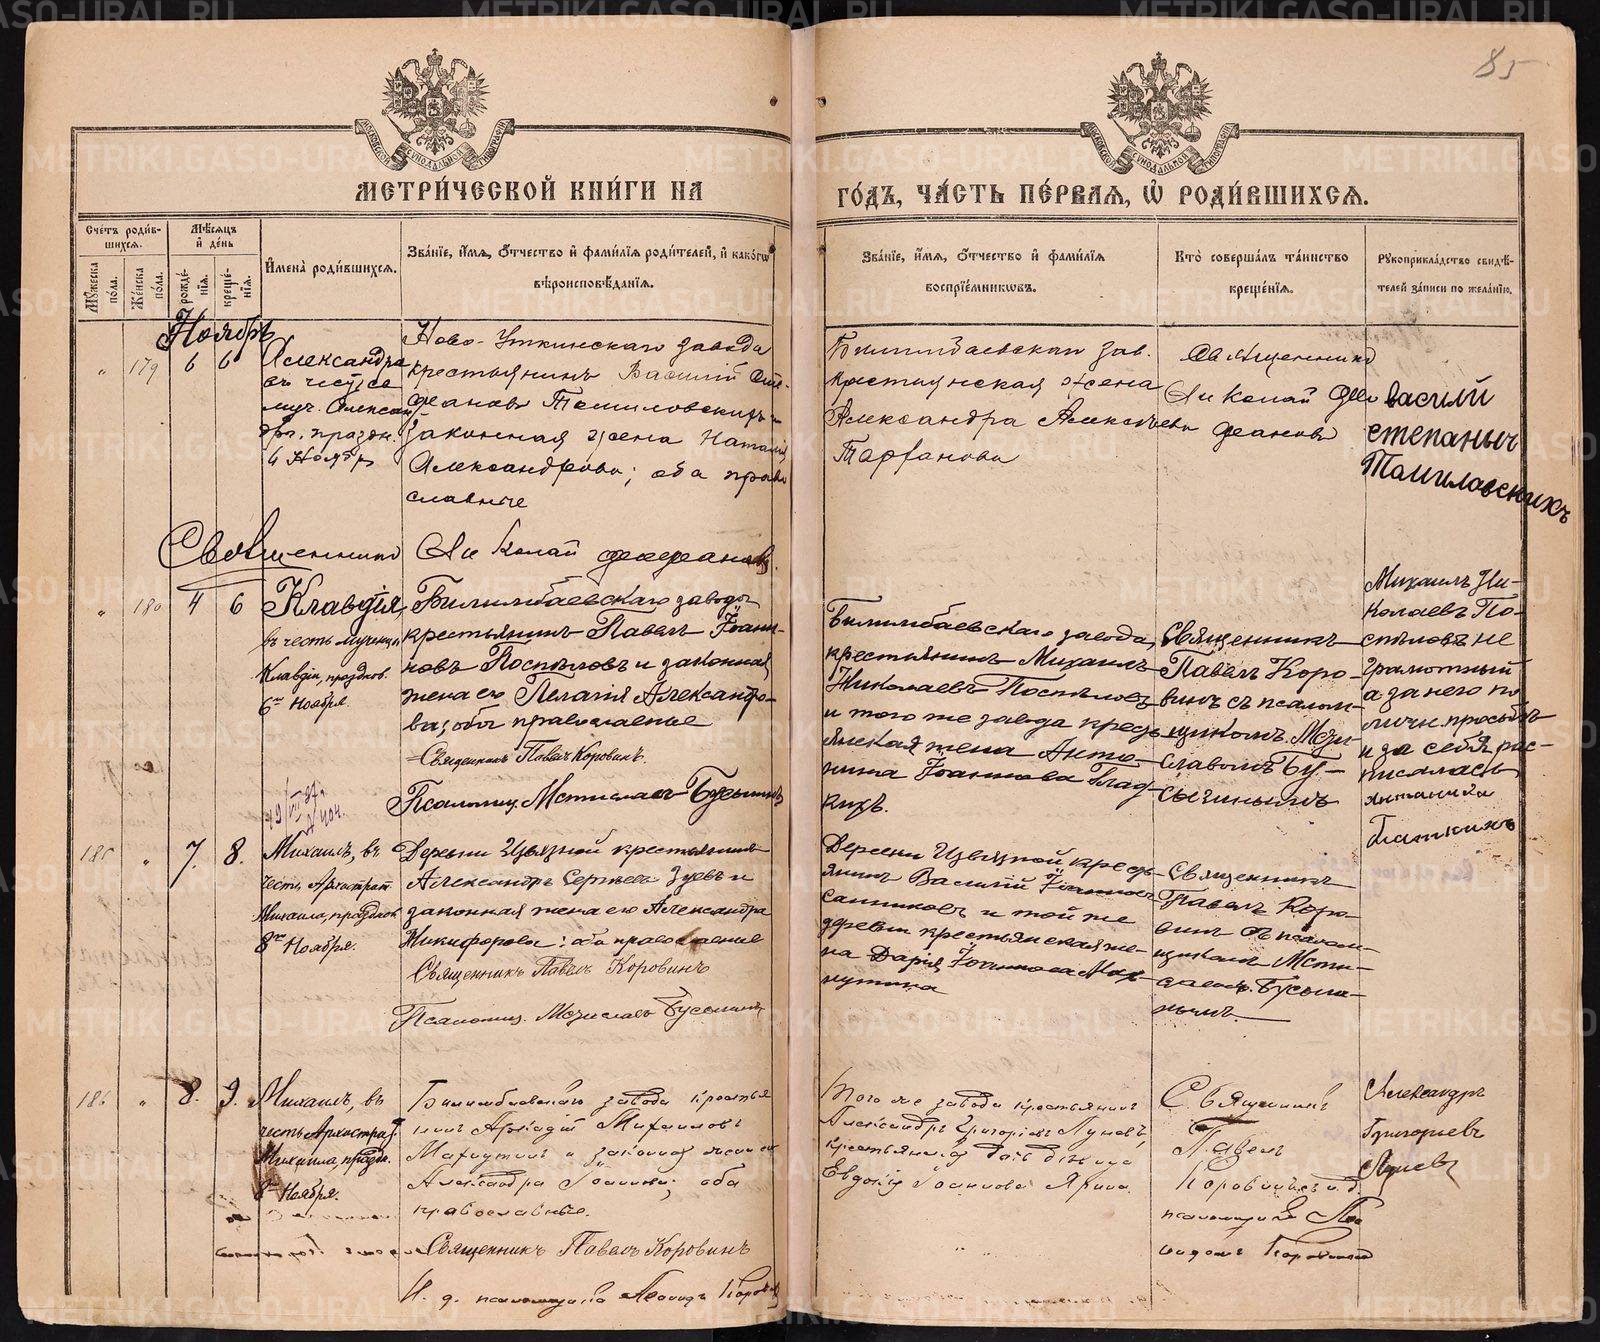 85
МОСКОВСКОЙ СѴНОДАЛЬНОЙ ТИПОГРАФІИ
МОСКОВСКОЙ СѴНОДАЛЬНОЙ ТИПОГРАФІИ
МЕТРИ́ЧЕСКОЙ КНИ́ГИ НА
ГО́ДЪ, ЧА́СТЬ ПЕ́РВАЯ, Ѡ РОДИ́ВШИХСЯ.
Счетъ роди́в-
шихся.
Мѣсяцъ
и де́нь
Мужеска по́ла.
Же́нска по́ла.
рожде́нїя.
креще́нїя.
Имена̀ роди́вшихся.
Зва́нїе, и́мя, о́тчество и фами́лїя роди́телей, и како́гѡ
вѣроисповѣ́данїя.
Зва́нїе, и́мя, о́тчество и фами́лїя
воспрїе́мникѡвъ.
Кто̀ соверша́лъ та́инство
креще́нїя.
Рукоприкла́дство свидѣ́-
телей за́писи по жела́нїю.
Ноябрь
" 179 6 6
Александра
въ честь св.
муч. Алексан
дры, праздн.
6 Ноября
Ново-Уткинскаго завода
крестьянинъ Василій Сте-
фановъ Томиловскихъ и
законная жена Наталія
Александрова; оба право
славные
Билимбаевскаго зав.
крестьянская жена
Александра Алексѣева
Тарханова
Священникъ
Николай Фео
фановъ
Василй
степаныч
Томиловских
Священникъ Николай Феофановъ
" 180 4 6
Клавдія,
въ честь мученицы
Клавдіи, празднов.
6го Ноября.
Билимбаевскаго завода
крестьянинъ Павелъ Іоан-
новъ Поспѣловъ и законная
жена его Пелагія Александро-
ва; оба православные
Священникъ Павелъ Коровинъ.
Псаломщ. Мстиславъ Бусыгинъ
Билимбаевскаго завода,
крестьянинъ Михаилъ
Николаевъ Поспѣловъ
и того же завода кресть
янская жена Анто-
нина Іоаннова Глад-
кихъ.
Священникъ
Павелъ Коро-
винъ съ псалом-
щикомъ Мсти-
славомъ Бу-
сыгинымъ
Михаилъ Ни-
колаевъ По-
спѣловъ не
грамотный
а за него по
личн. просьбѣ
и за себя рас-
писалась
185 " 7. 8.
Михаилъ, въ
честь Архистрат.
Михаила, празднов.
8го Ноября.
Деревни Извѣзной крестьянинъ
Александръ Сергѣевъ Зуевъ и
законная жена его Александра
Никифорова: оба православные
Священникъ Павелъ Коровинъ
Псаломщ. Мстиславъ Бусыгинъ
Деревни Извѣзной кресть
янинъ Василій Іоанновъ
Санниковъ и той же
деревни крестьянская же-
на Дарія Іоаннова
Священникъ
Павелъ Коро-
винъ съ псалом-
щикомъ Мсти-
славомъ Бусыги-
нымъ.
186 " 8. 9.
Михаилъ, въ
честь Архистрат.
Михаила, праздн.
8го Ноября.
Билимбаевскаго завода крестья
нинъ Аркадій Михаиловъ
и законная жена его
Александра Іоаннова; оба
православные.
Священникъ Павелъ Коровинъ
И. д. псаломщика Леонидъ Коровинъ
Того же завода крестьянинъ
Александръ Григорьевъ
Евдокія Іоаннова
Священникъ
Павелъ
Коровинъ с и. д.
псаломщика Лео
нидомъ Коровинымъ
Александръ
Григорьевъ
METRIKI.GASO-URAL.RU